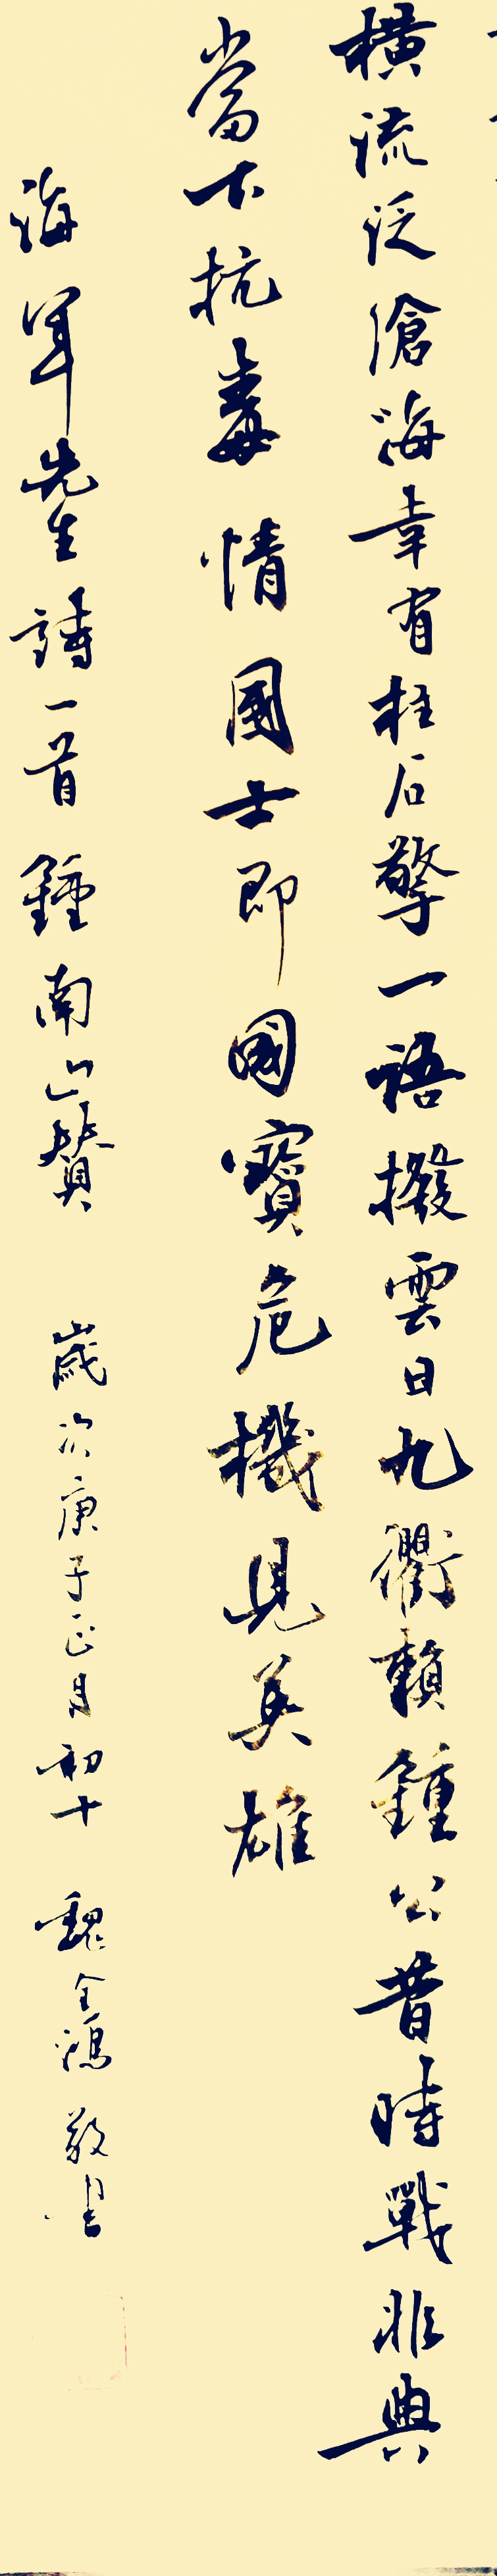 橫流泛滄海幸有柱石擎一語撥雲日九衢賴鍾公昔時戰非典
當下抗毒情國士即國寶危機見英雄
海軍先生詩一首鍾南山贊 歲次庚子正月初十 魏全鴻敬書